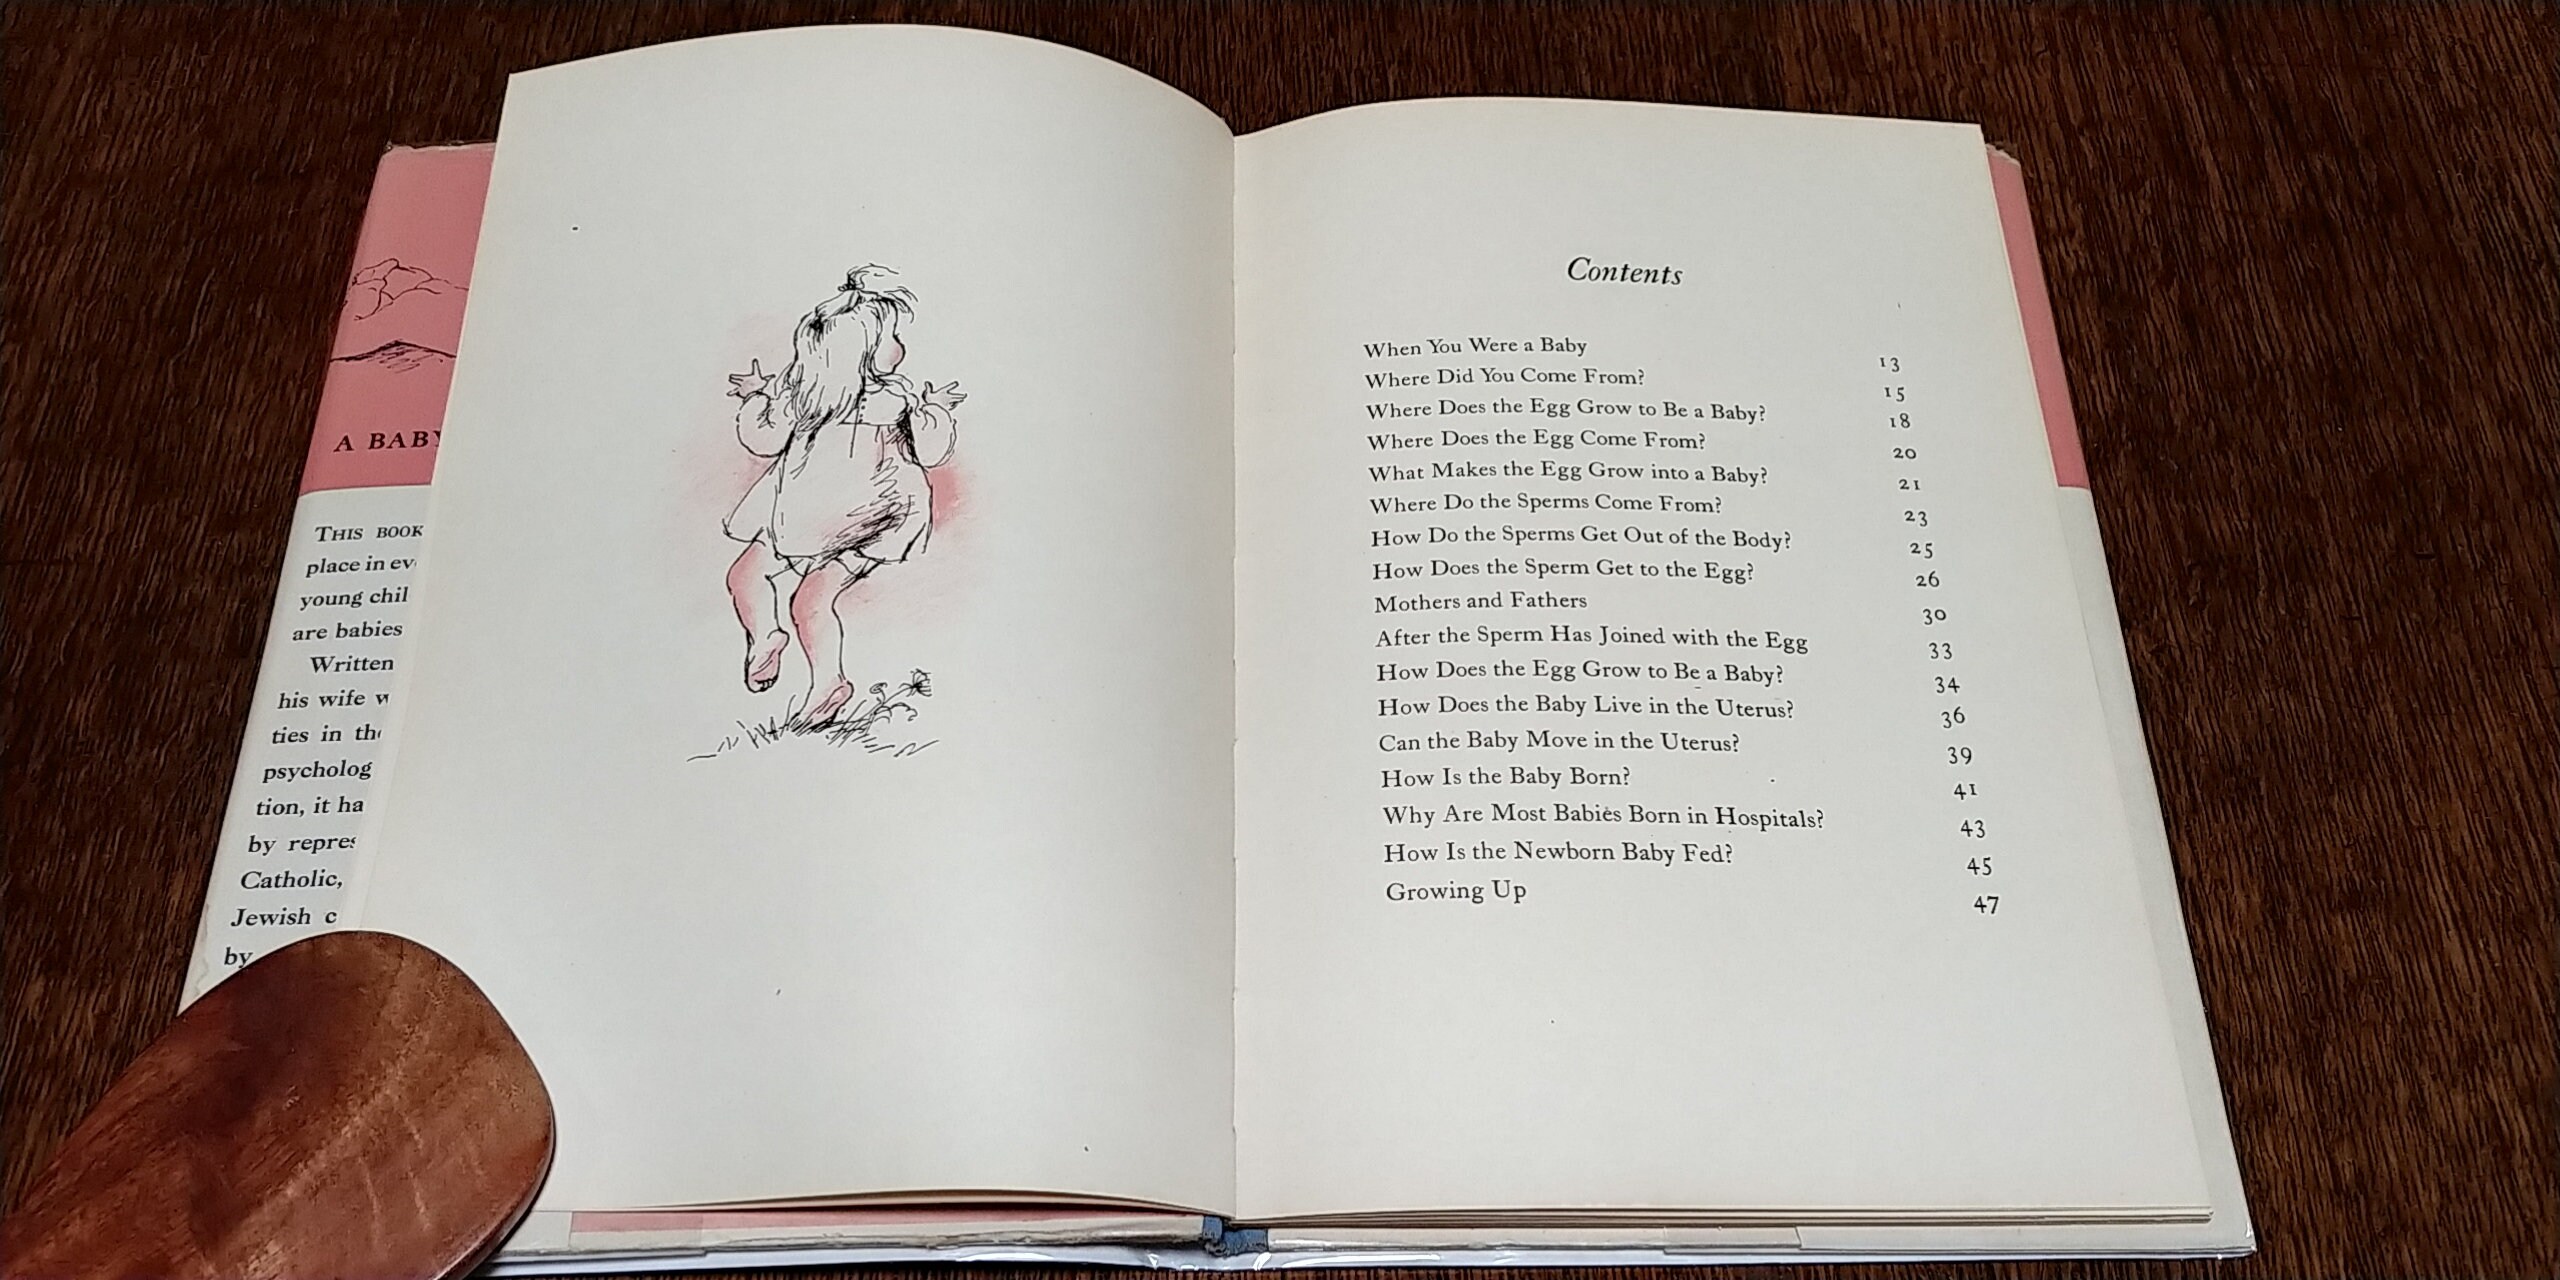 A BABY
THIS BOOK
place in ev
young chil
are babies
Written
his wife w
ties in the
psycholog
tion, it ha
by repres
Catholic,
Jewish c
by
Contents
When You Were a Baby 13
Where Did You Come From? 15
Where Does the Egg Grow to Be a Baby? 18
Where Does the Egg Come From? 20
What Makes the Egg Grow into a Baby? 21
Where Do the Sperms Come From? 23
How Do the Sperms Get Out of the Body? 25
How Does the Sperm Get to the Egg? 26
Mothers and Fathers 30
After the Sperm Has Joined with the Egg 33
How Does the Egg Grow to Be a Baby? 34
How Does the Baby Live in the Uterus? 36
Can the Baby Move in the Uterus? 39
How Is the Baby Born? 41
Why Are Most Babies Born in Hospitals? 43
How Is the Newborn Baby Fed? 45
Growing Up 47